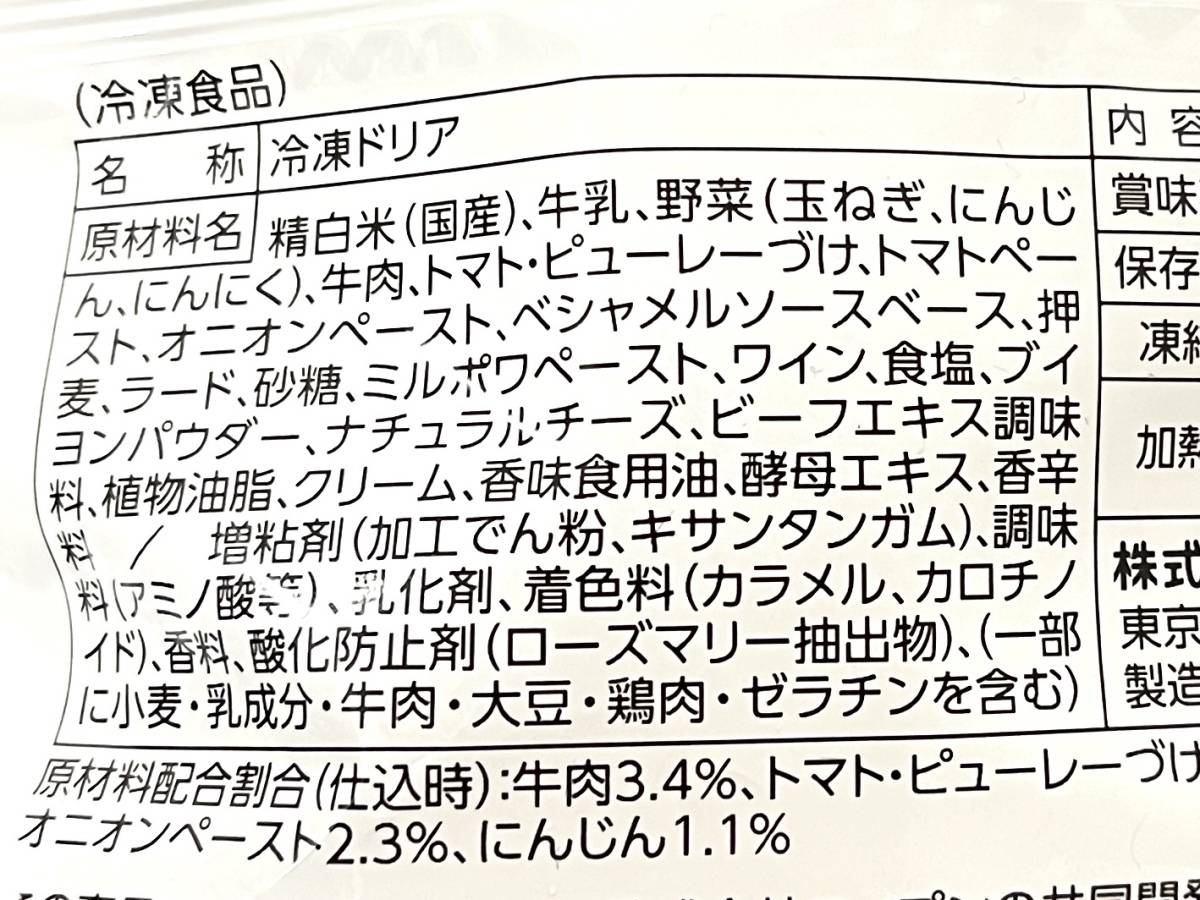 (冷凍食品)
名 称 冷凍ドリア
原材料名 精白米(国産)、牛乳、野菜(玉ねぎ、にんじ
ん、にんにく)、牛肉、トマト・ピューレーづけ、トマトペー
スト、オニオンペースト、ベシャメルソースベース、押
麦、ラード、砂糖、ミルポワペースト、ワイン、食塩、ブイ
ヨンパウダー、ナチュラルチーズ、ビーフエキス調味
料、植物油脂、クリーム、香味食用油、酵母エキス、香辛
料 / 増粘剤(加工でん粉、キサンタンガム)、調味
料(アミノ酸等)、乳化剤、着色料(カラメル、カロチノ
イド)、香料、酸化防止剤(ローズマリー抽出物)、(一部
に小麦・乳成分・牛肉・大豆・鶏肉・ゼラチンを含む)
内 容
賞味
保存
凍結
加熱
株式
東京
製造
原材料配合割合(仕込時):牛肉3.4%、トマト・ピューレーづけ
オニオンペースト2.3%、にんじん1.1%